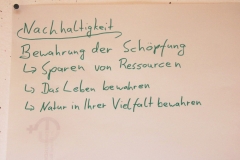 Nachhaltigkeit
Bewahrung der Schöpfung
↳ Sparen von Ressourcen
↳ Das Leben bewahren
↳ Natur in Ihrer Vielfalt bewahren